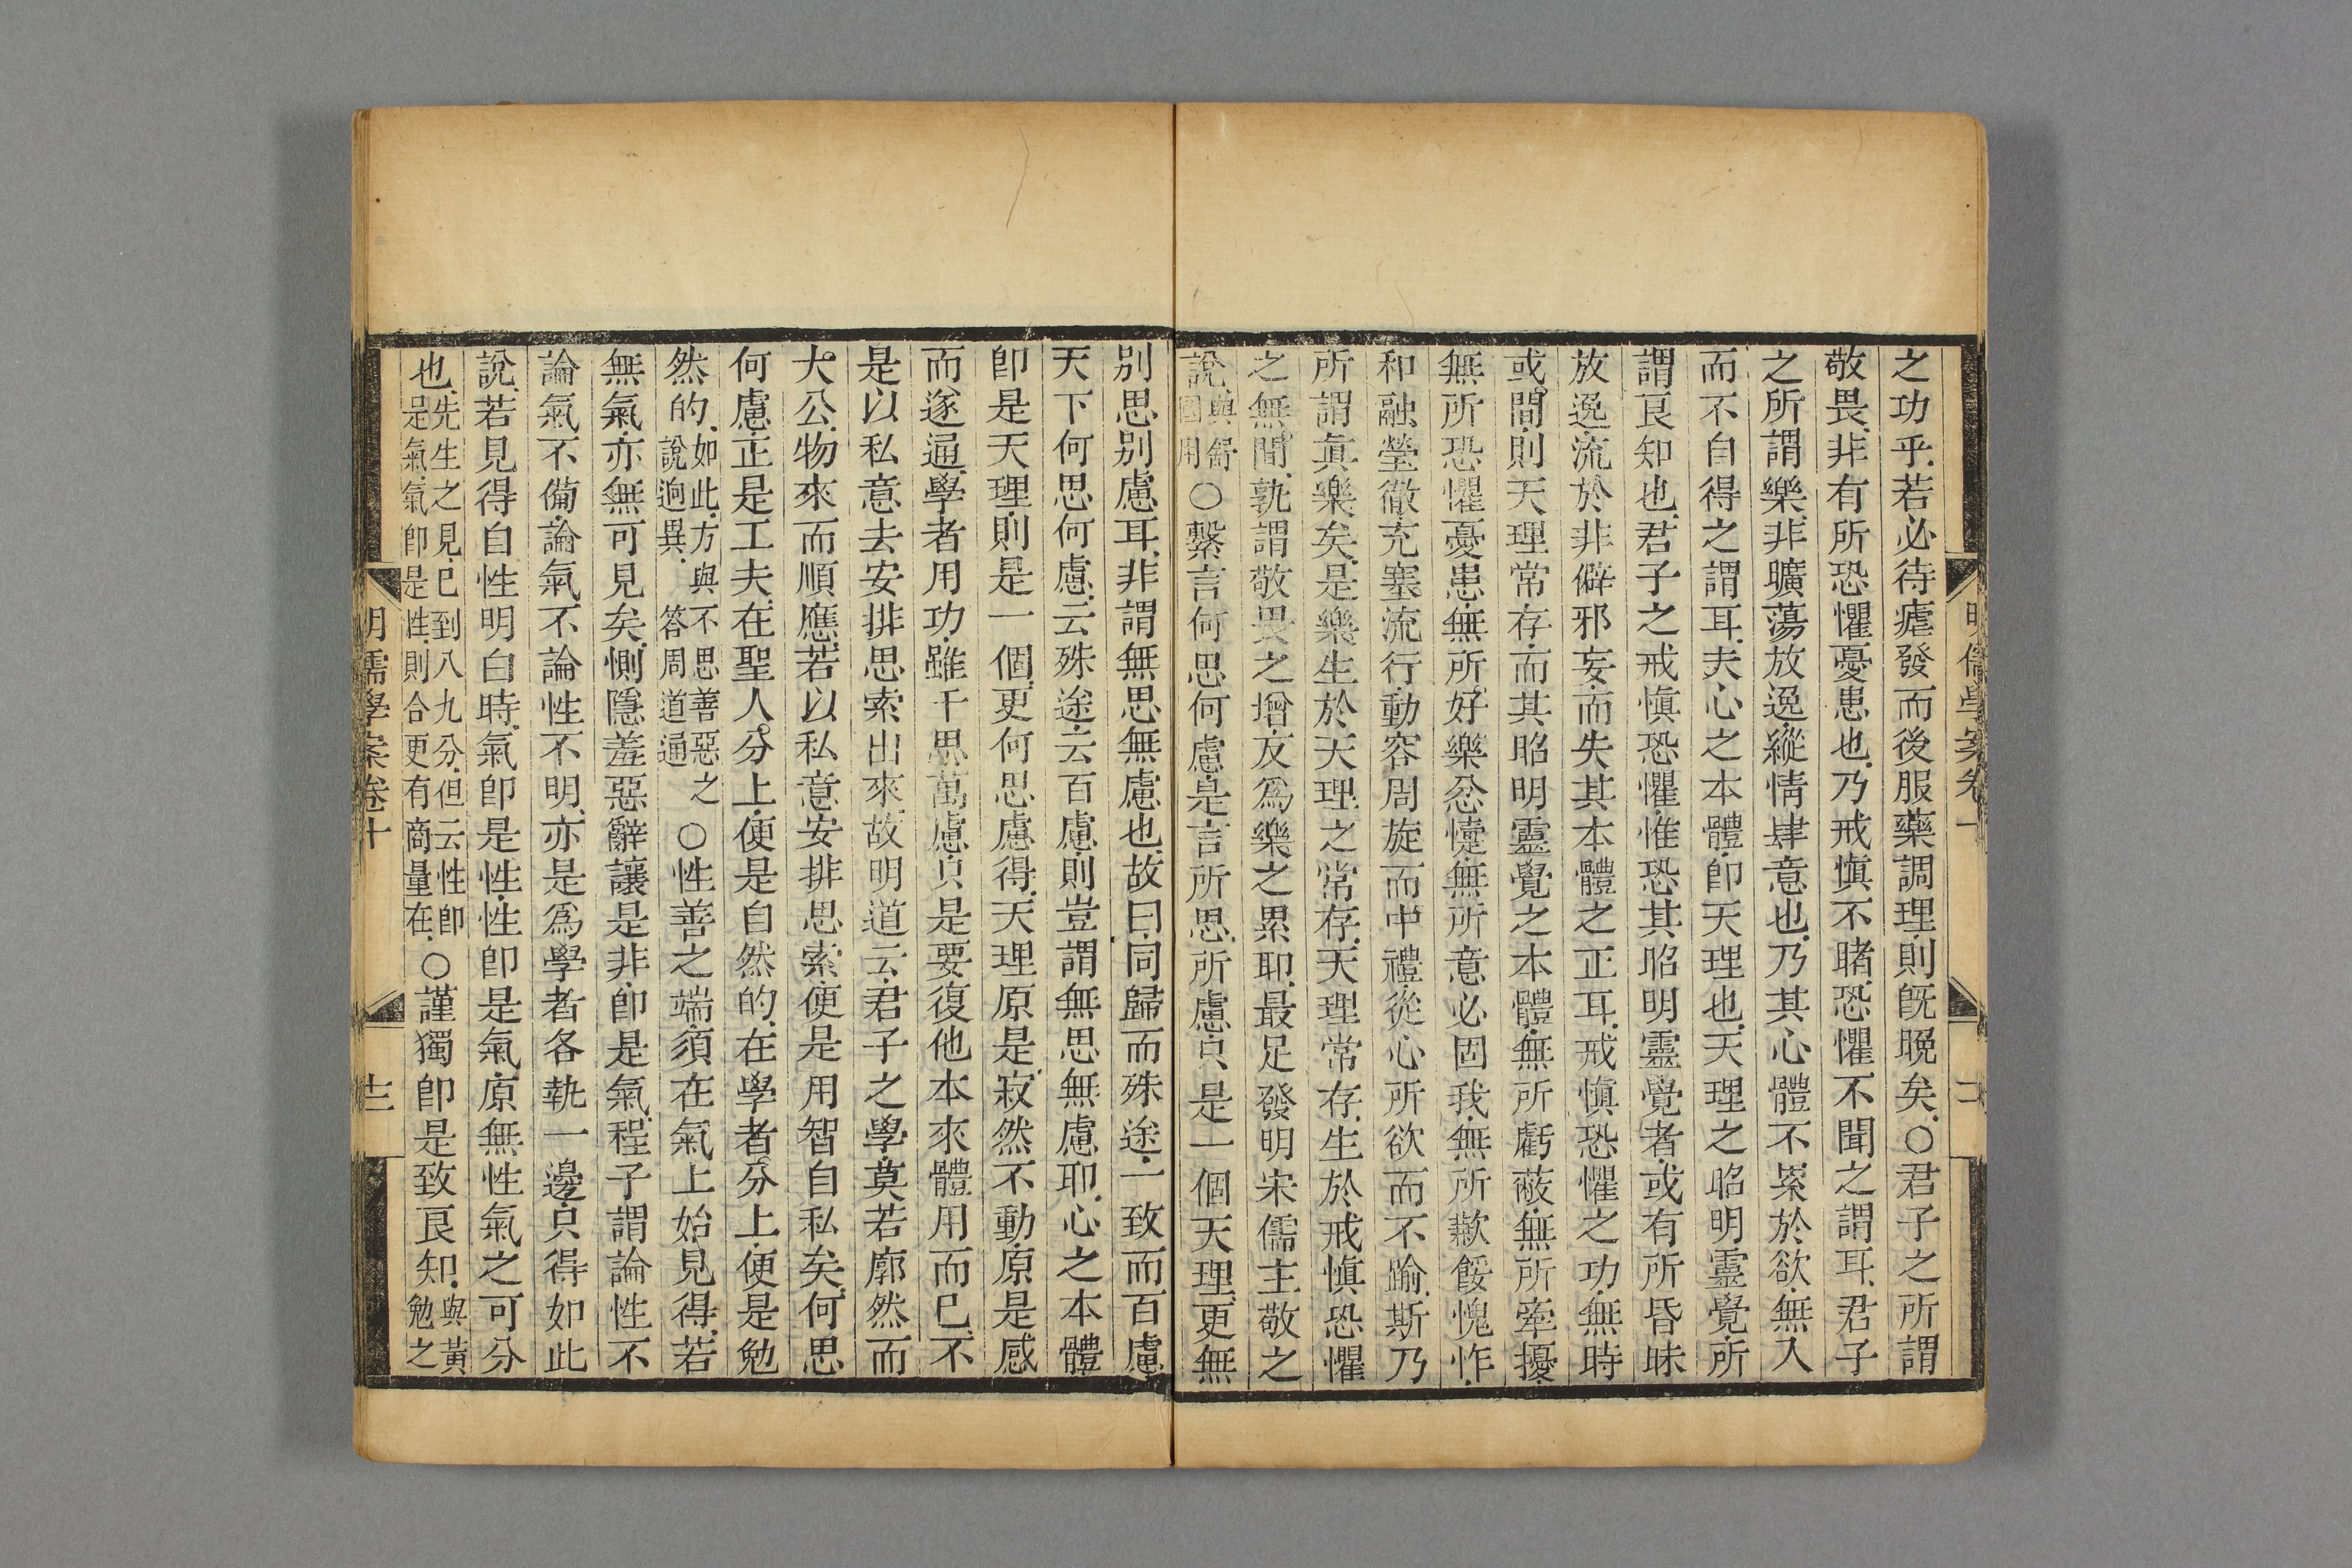 之功乎若必待瘧發而後服藥調理則旣晚矣○君子之所謂
敬畏非有所恐懼憂患也乃戒愼不睹恐懼不聞之謂耳君子
之所謂樂非曠蕩放逸縱情肆意也乃其心體不累於欲無入
而不自得之謂耳夫心之本體卽天理也天理之昭明靈覺所
謂良知也君子之戒愼恐懼惟恐其昭明靈覺者或有所昏昧
放逸流於非僻邪妄而失其本體之正耳戒愼恐懼之功無時
或間則天理常存而其昭明靈覺之本體無所虧蔽無所牽擾
無所恐懼憂患無所好樂忿懥無所意必固我無所歉餒愧怍
和融瑩徹充塞流行動容周旋而中禮從心所欲而不踰斯乃
所謂眞樂矣是樂生於天理之常存天理常存生於戒愼恐懼
之無間孰謂敬畏之增反爲樂之累耶最足發明宋儒主敬之
說與舒國用○繫言何思何慮是言所思所慮只是一個天理更無
別思別慮耳非謂無思無慮也故曰同歸而殊途一致而百慮
天下何思何慮云殊途云百慮則豈謂無思無慮耶心之本體
卽是天理則是一個更何思慮得天理原是寂然不動原是感
而遂通學者用功雖千思萬慮只是要復他本來體用而已不
是以私意去安排思索出來故明道云君子之學莫若廓然而
大公物來而順應若以私意安排思索便是用智自私矣何思
何慮正是工夫在聖人分上便是自然的在學者分上便是勉
然的如此方與不思善惡之說逈異答周道通○性善之端須在氣上始見得若
無氣亦無可見矣惻隱羞惡辭讓是非卽是氣程子謂論性不
論氣不備論氣不論性不明亦是爲學者各執一邊只得如此
說若見得自性明白時氣卽是性性卽是氣原無性氣之可分
也先生之見已到八九分但云性卽是氣氣卽是性則合更有商量在○謹獨卽是致良知與黃勉之
明儒學案卷十
十二